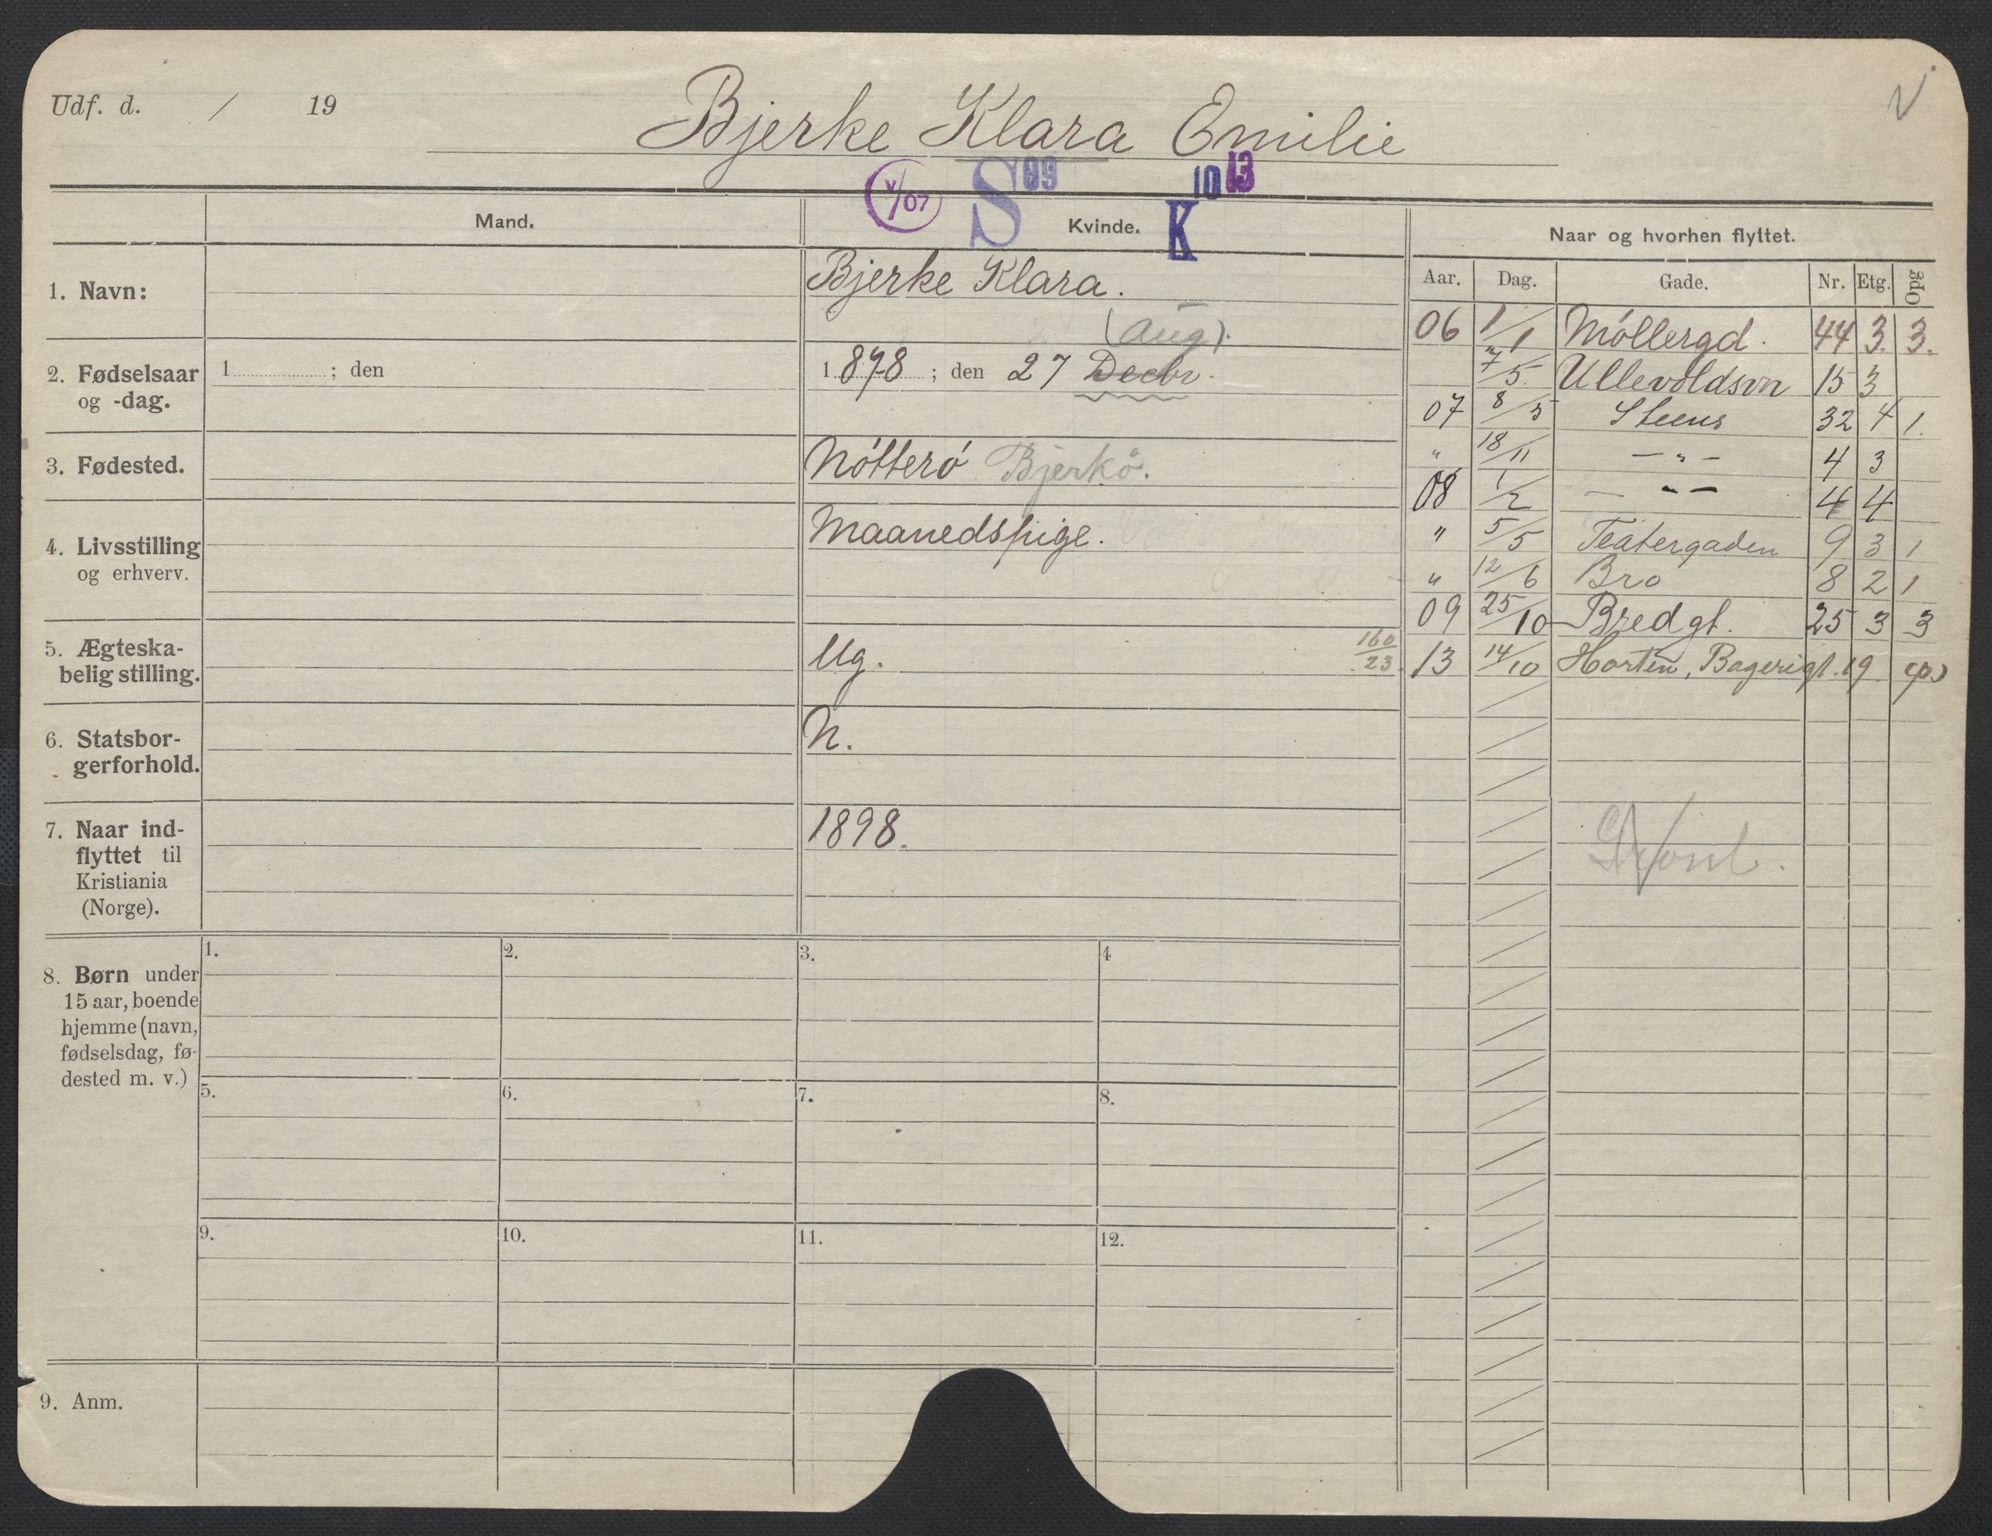 Udf. d. / 19
Bjerke Klara Emilie
V/07 S 09 K 10 13
Mand.
Kvinde.
Naar og hvorhen flyttet.
Aar. Dag. Gade. Nr. Etg. Opg
1. Navn:
Bjerke Klara.
(Aug).
2. Fødselsaar
og -dag.
1 ; den
1 878 ; den 27 Decbr.
3. Fødested.
Nötterö Bjerkö.
4. Livsstilling
og erhverv.
Maanedspige.
5. Ægteska-
belig stilling.
Ug.
160/23.
6. Statsbor-
gerforhold.
N.
7. Naar ind-
flyttet til
Kristiania
(Norge).
1898.
06 1/1 Möllergd. 44 3. 3.
7/5 Ullevoldsvn 15 3
07 8/5 Steens 32 4 1.
" 18/11 — " — 4 3
08 1/2 — " — 4 4
" 5/5 Teatergaden 9 3 1
" 12/6 Bro 8 2 1
09 25/10 Bredgt. 25 3 3
13 14/10 Horten, Bagerigt. 19
8. Børn under
15 aar, boende
hjemme (navn,
fødselsdag, fø-
dested m. v.)
1. 2. 3. 4
5. 6. 7. 8.
9. 10. 11. 12.
9. Anm.